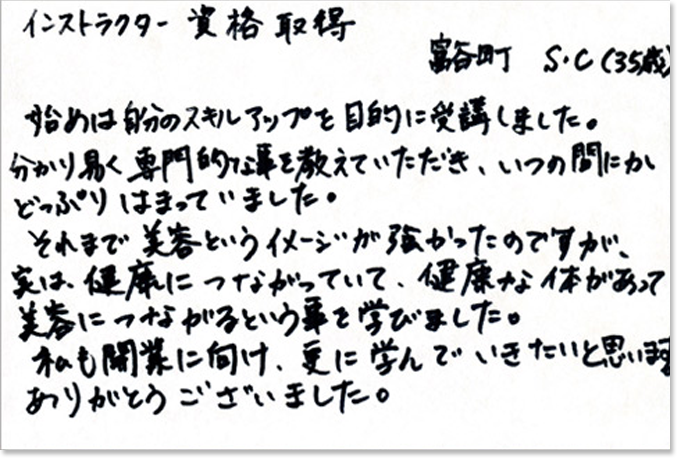 インストラクター 資格取得
富谷町 S・C(35歳)
始めは自分のスキルアップを目的に受講しました。
分かり易く専門的な事を教えていただき、いつの間にか
どっぷりはまっていました。
それまで美容というイメージが強かったのですが、
実は、健康につながっていて、健康な体があって
美容につながるという事を学びました。
私も開業に向け、更に学んでいきたいと思います
ありがとうございました。